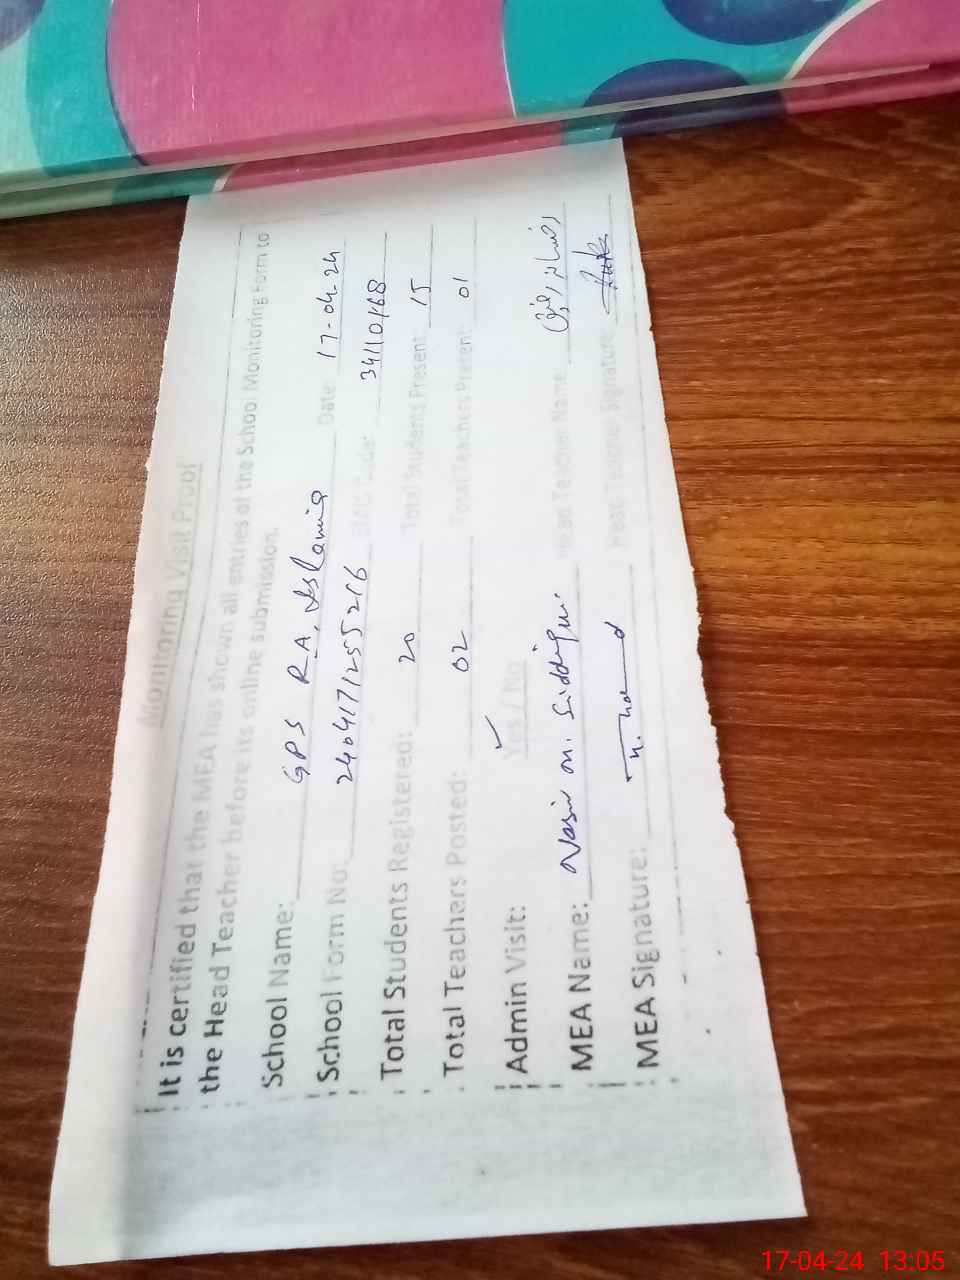 Monitoring Visit Proof
It is certified that the MEA has shown all entries of the School Monitoring Form to
the Head Teacher before its online submission.
School Name: GPS R.A. Islamia Date: 17-04-24
School Form No: 2404171255216 EMIS Code: 34110168
Total Students Registered: 20 Total Students Present: 15
Total Teachers Posted: 02 Total Teachers Present: 01
Admin Visit: Yes / No
MEA Name: Nasir M. Siddiqui Head Teacher Name:
MEA Signature: Head Teacher Signature:
17-04-24 13:05